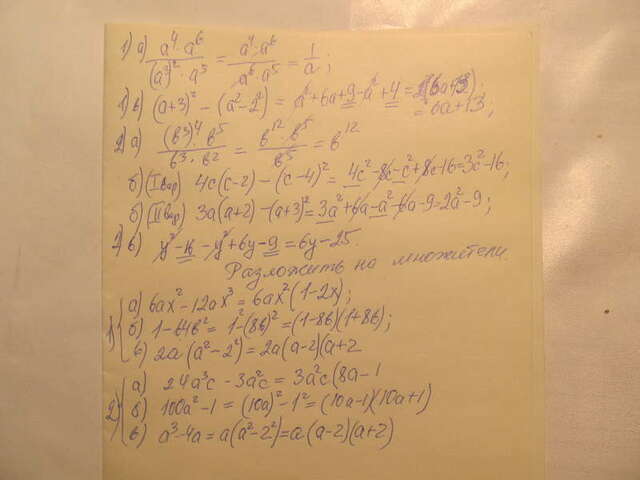 1) а) a⁴·a⁶ / (a³)²·a⁵ = a⁴·a⁶ / a⁶·a⁵ = 1/a;
1) в) (a+3)² - (a²-2²) = a²+6a+9-a²+4 =
= 6a+13;
2) а) (b³)⁴·b⁵ / b³·b² = b¹²·b⁵ / b⁵ = b¹²
б) (I вар) 4c(c-2) - (c-4)² = 4c²-8c-c²+8c-16=3c²-16;
б) (II вар) 3a(a+2) - (a+3)² = 3a²+6a-a²-6a-9=2a²-9;
2) в) y²-16-y²+6y-9=6y-25.
Разложить на множители.
1) а) 6ax²-12ax³=6ax²(1-2x);
б) 1-64b²= 1²-(8b)²=(1-8b)(1+8b);
в) 2a(a²-2²)=2a(a-2)(a+2
2) а) 24a³c - 3a²c = 3a²c(8a-1
б) 100a²-1=(10a)²-1²=(10a-1)(10a+1)
в) a³-4a=a(a²-2²)=a(a-2)(a+2)